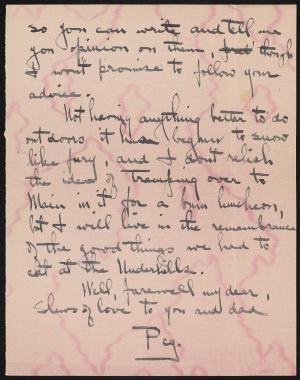 so you can write and tell me
you opinion on them, just though
I won't promise to follow your
advice.
Not having anything better to do
outdoors it has begun to snow
like fury, and I don't relish
the idea of tramping over to
Main in it for a bum luncheon,
but I will live in the remembrance
of the good things we had to
eat at the Underhills.
Well, farewell my dear,
Slews of love to you and dad
Peg.